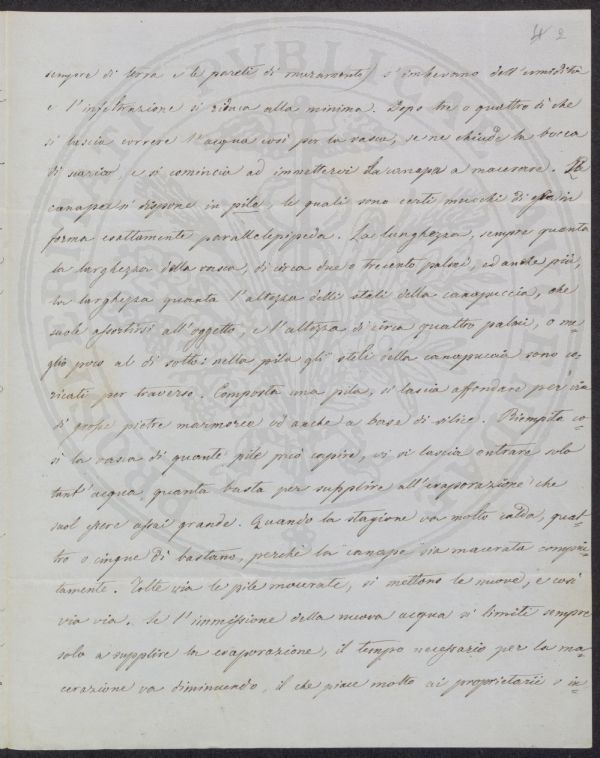 sempre di terra e le pareti di muramento) s'imbevano dell'umidità
e l'infiltrazione si riduca alla minima. Dopo tre o quattro dì che
si lascia correre l'acqua così per la vasca, se ne chiude la bocca
di scarico e si comincia ad immettervi la canapa a macerare. La
canape si dispone in pile, le quali sono certi mucchi di essa in
forma esattamente parallelepipeda. La lunghezza, sempre quanta
la larghezza della vasca, di circa due o trecento palmi, ed anche più,
la larghezza quanta l'altezza delli steli della canapuccia, che
suole assortirsi all'oggetto, e l'altezza di circa quattro palmi, o me=
glio poco al di sotto: nella pila gli steli della canapuccia sono co=
ricati per traverso. Composta una pila, si lascia affondare per via
di grosse pietre marmoree od anche a base di silice. Riempita co=
sì la vasca di quante pile può capire, vi si lascia entrare solo
tant'acqua, quanta basta per supplire all'evaporazione che
suol essere assai grande. Quando la stagione va molto calda, quat=
tro o cinque dì bastano, perchè la canape sia macerata compiu=
tamente. Tolte via le pile macerate, si mettono le nuove, e così
via via. Se l'immissione della nuova acqua si limiti sempre
solo a supplire la evaporazione, il tempo necessario per la ma=
cerazione va diminuendo, il che piace molto ai proprietarii o in=